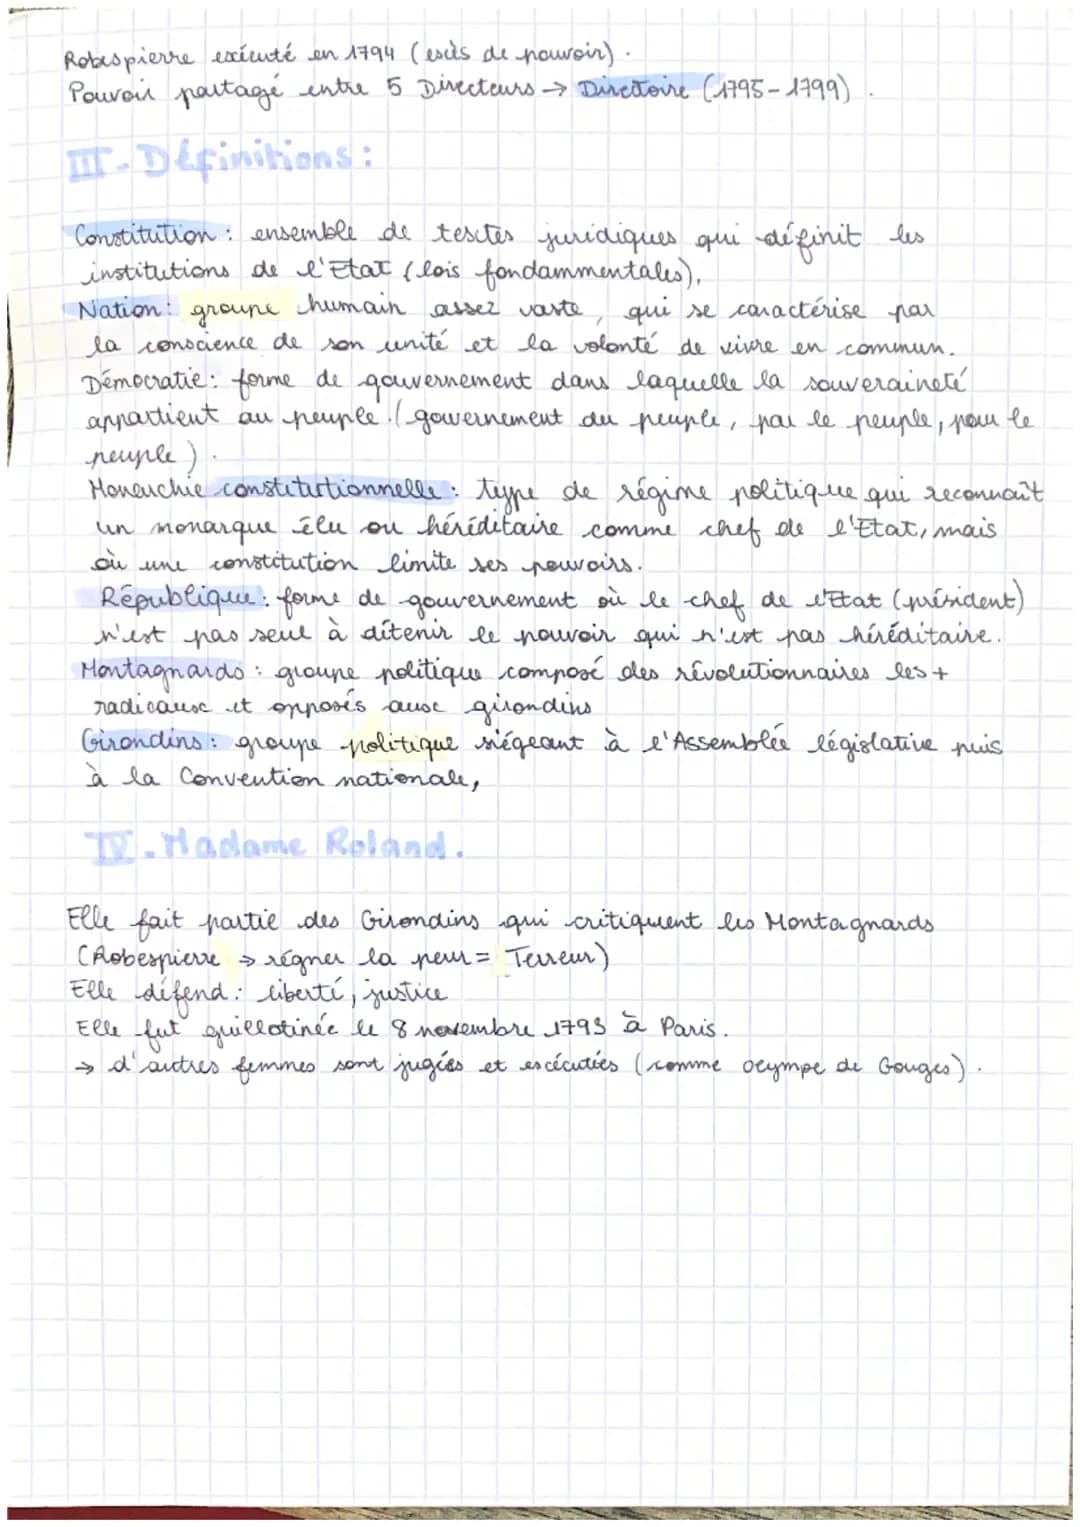 Robespierre exécuté en 1794 (excès de pouvoir).
Pouvoir partagé entre 5 Directeurs → Directoire (1795-1799).
III-Définitions:
Constitution: ensemble de textes juridiques qui définit les
institutions de l'Etat (lois fondammentales),
Nation: groupe humain assez vaste, qui se caractérise par
la conscience de son unité et la volonté de vivre en commun.
Démocratie: forme de gouvernement dans laquelle la souveraineté
appartient au peuple. (gouvernement du peuple, par le peuple, pour le
peuple).
Monarchie constitutionnelle: type de régime politique qui reconnaît
un monarque élu ou héréditaire comme chef de l'Etat, mais
où une constitution limite ses pouvoirs.
République: forme de gouvernement où le chef de l'Etat (président)
n'est pas seul à détenir le pouvoir qui n'est pas héréditaire.
Montagnards: groupe politique composé des révolutionnaires les +
radicaux et opposés aux girondins
Girondins: groupe politique siégeant à l'Assemblée législative puis
à la Convention nationale,
IV.Madame Roland.
Elle fait partie des Girondins qui critiquent les Montagnards
(Robespierre → régner la peur = Terreur)
Elle défend: liberté, justice
Elle fut guillotinée le 8 novembre 1793 à Paris.
→ d'autres femmes sont jugées et excécutées (comme Olympe de Gouges).